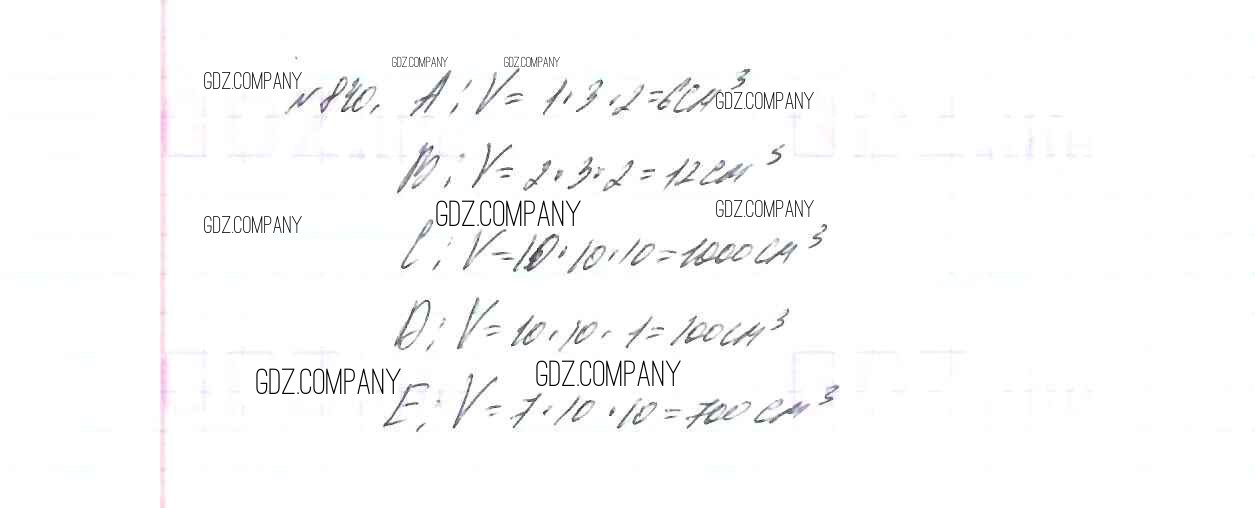 GDZ.COMPANY GDZ.COMPANY
GDZ.COMPANY
№ 840. A; V = 1 · 3 · 2 = 6 см³
GDZ.COMPANY
B; V = 2 · 3 · 2 = 12 см³
GDZ.COMPANY GDZ.COMPANY GDZ.COMPANY
C; V = 10 · 10 · 10 = 1000 см³
D; V = 10 · 10 · 1 = 100 см³
GDZ.COMPANY GDZ.COMPANY
E; V = 7 · 10 · 10 = 700 см³